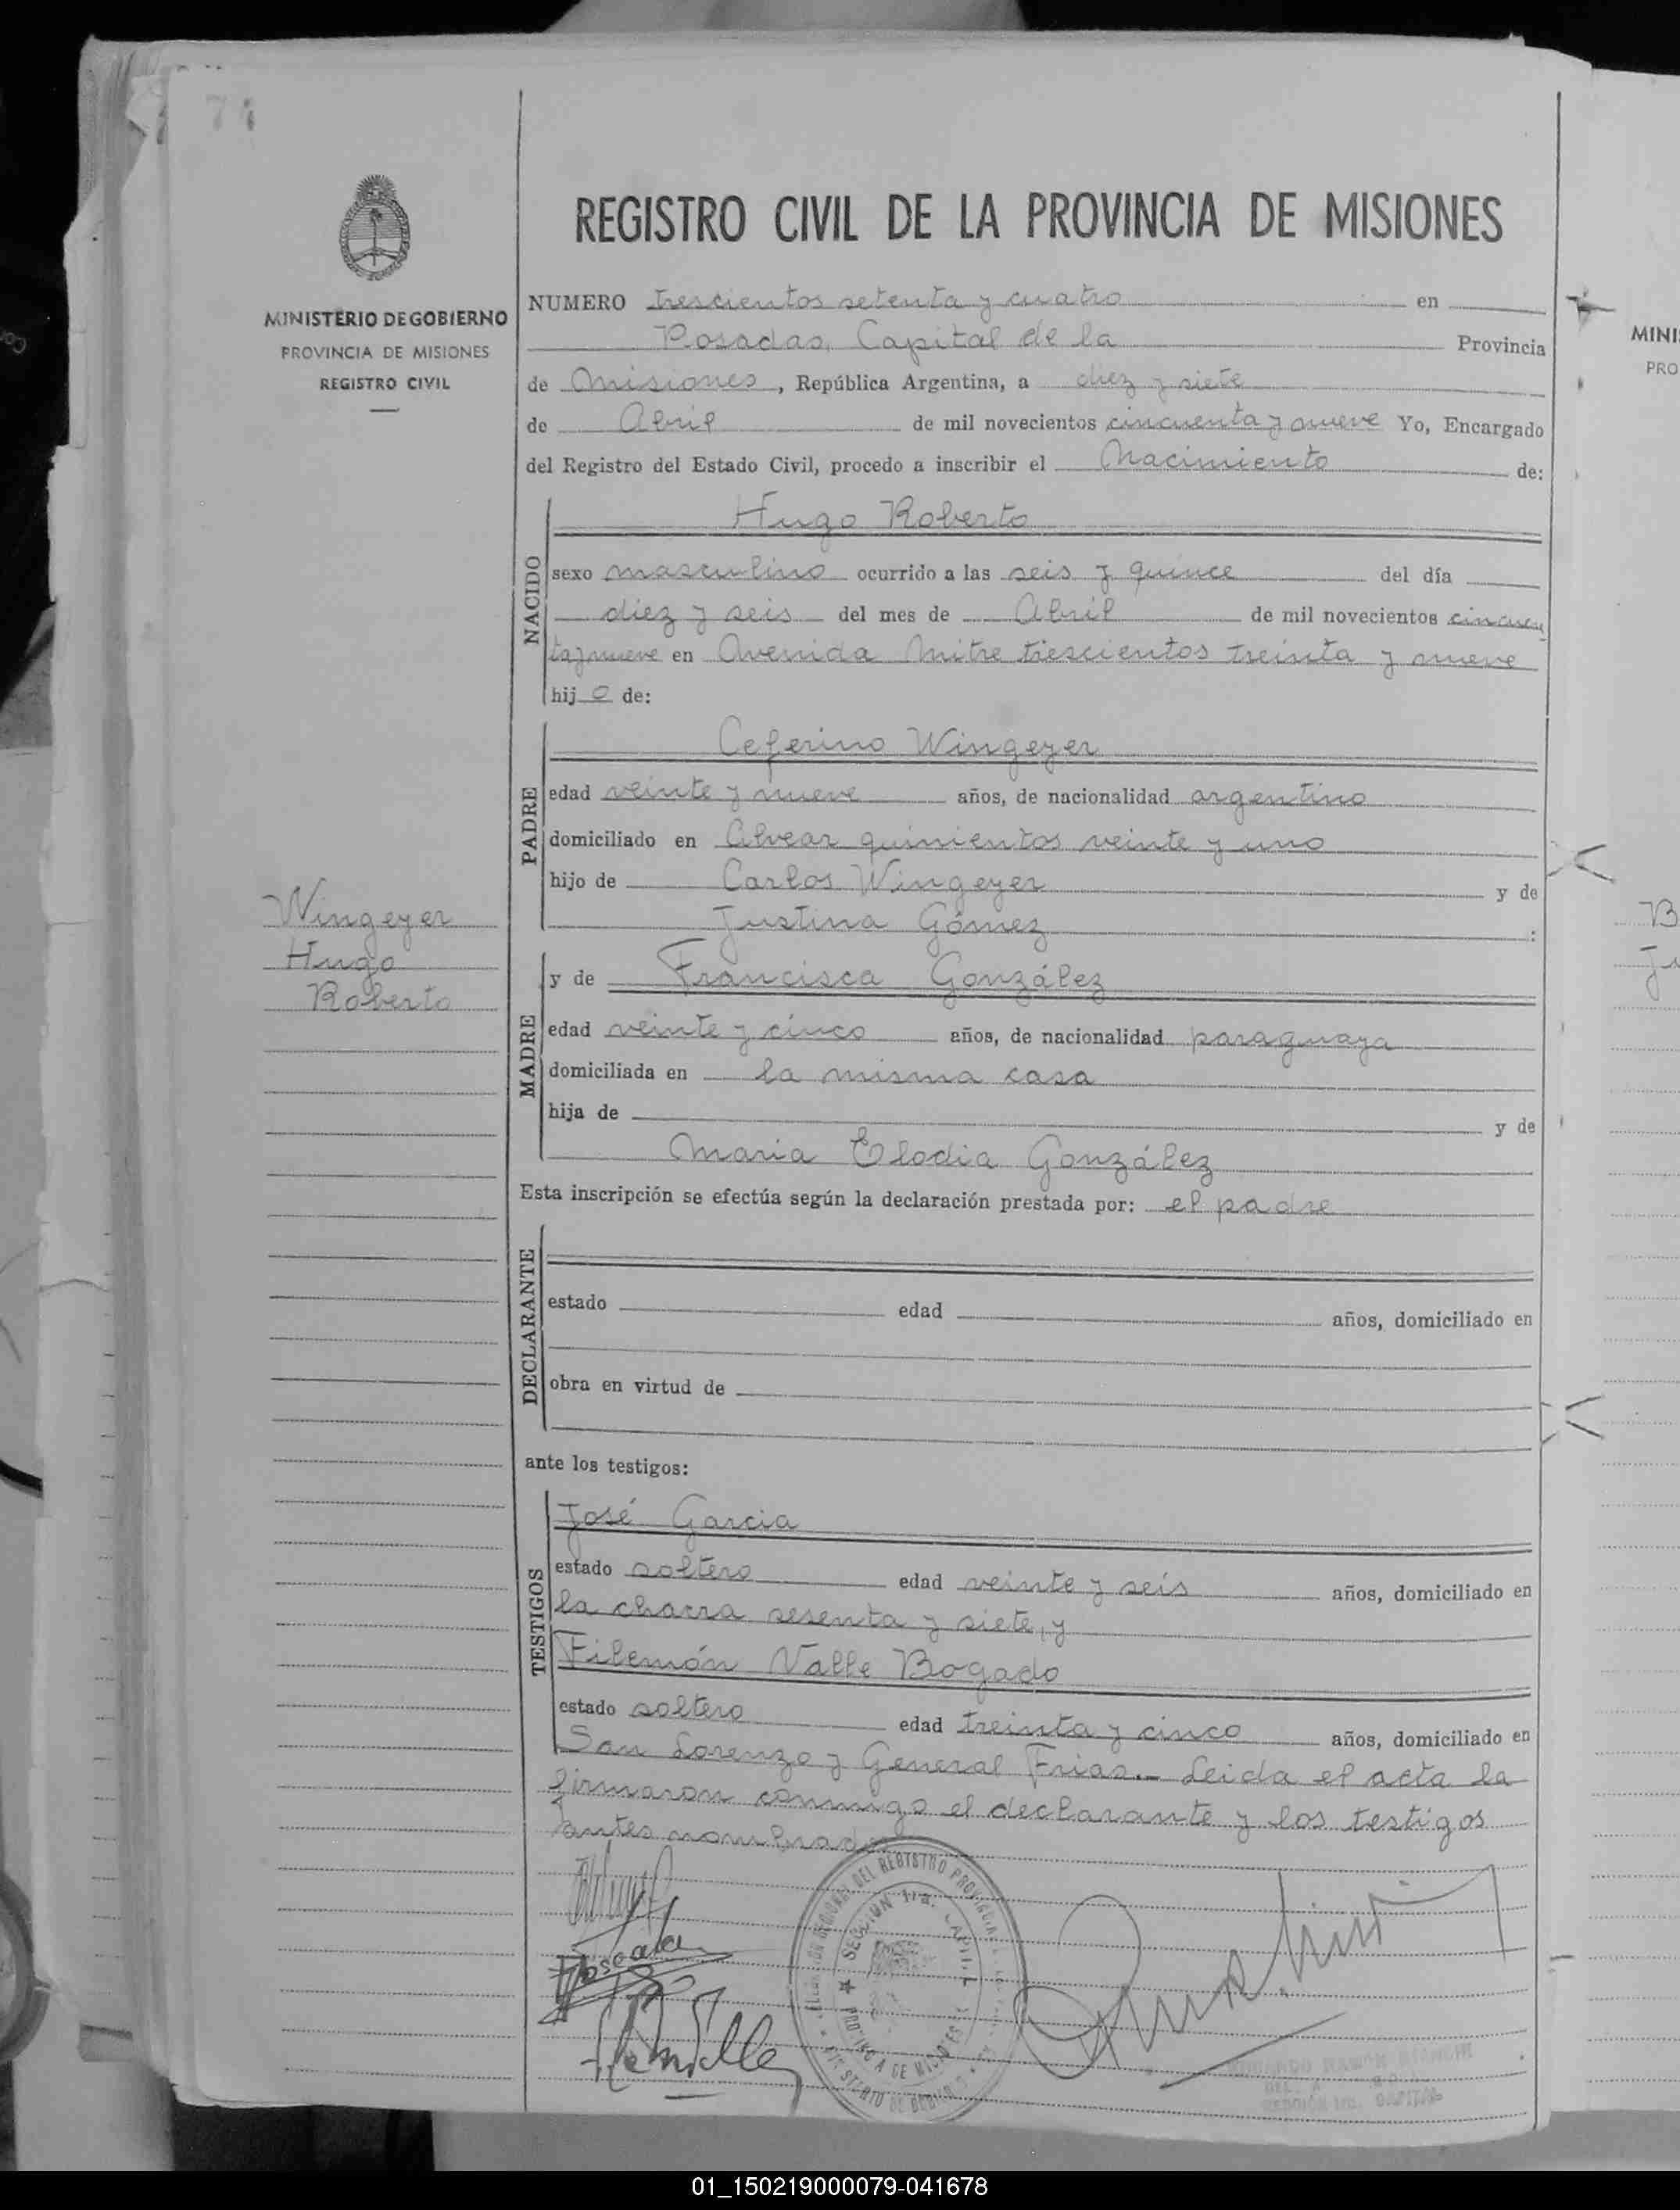 MINISTERIO DE GOBIERNO
PROVINCIA DE MISIONES
REGISTRO CIVIL
Wingeyer
Hugo
Roberto
REGISTRO CIVIL DE LA PROVINCIA DE MISIONES
NUMERO trescientos setenta y cuatro en
Posadas, Capital de la Provincia
de Misiones, República Argentina, a diez y siete
de Abril de mil novecientos cincuenta y nueve Yo, Encargado
del Registro del Estado Civil, procedo a inscribir el Nacimiento de:
NACIDO
Hugo Roberto
sexo masculino ocurrido a las seis y quince del día
diez y seis del mes de Abril de mil novecientos cincuen
ta y nueve en Avenida Mitre trescientos treinta y nueve
hijo de:
PADRE
Ceferino Wingeyer
edad veinte y nueve años, de nacionalidad argentino
domiciliado en Alvear quinientos veinte y uno
hijo de Carlos Wingeyer y de
Justina Gómez :
MADRE
y de Francisca González
edad veinte y cinco años, de nacionalidad paraguaya
domiciliada en la misma casa
hija de y de
Maria Elodia González
Esta inscripción se efectúa según la declaración prestada por: el padre
DECLARANTE
estado edad años, domiciliado en
obra en virtud de
ante los testigos:
TESTIGOS
José Garcia
estado soltero edad veinte y seis años, domiciliado en
la chacra sesenta y siete, y
Filemón Valle Bogado
estado soltero edad treinta y cinco años, domiciliado en
San Lorenzo y General Frias.- Leida el acta la
firmaron conmigo el declarante y los testigos
antes nombrados
DEL REGISTRO PROVINCIAL
SECCION 1ra. CAPITAL
PROVINCIA DE MISIONES
SECCIÓN 1ra. CAPITAL
MINI
PRO
01_150219000079-041678